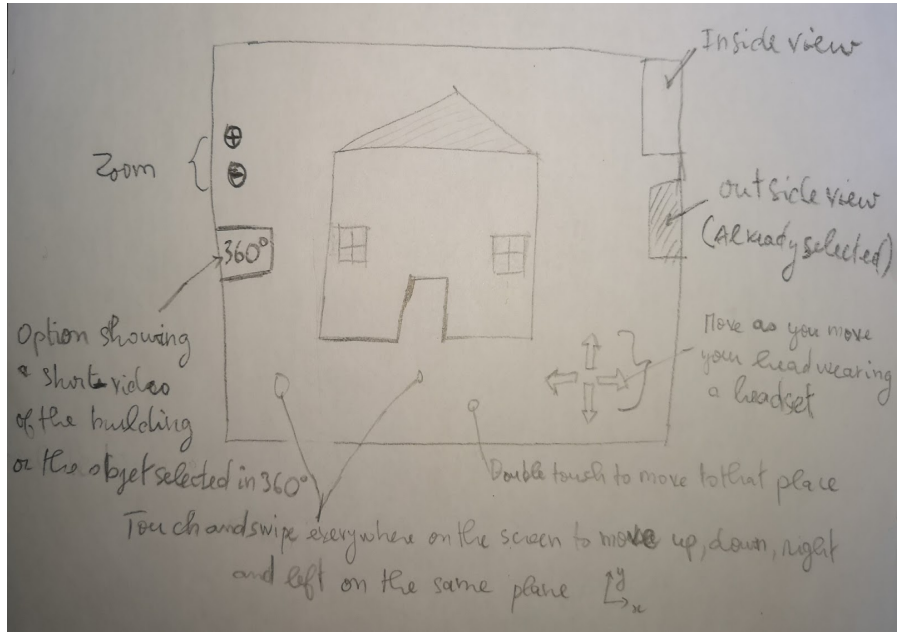 Inside view
Zoom
outside view
(Already selected)
360°
Option showing
a short video
of the building
or the objet selected in 360°
Move as you move
your head wearing
a headset
Double touch to move to that place
Touch and swipe everywhere on the screen to move up, down, right
and left on the same plane y
x